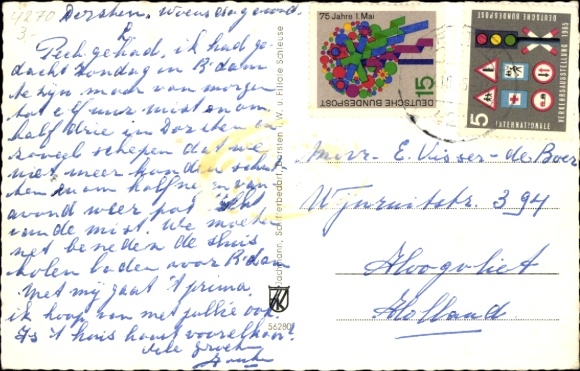 4270
3.-
Dorsten, Woensdagavond.
Pech gehad, ik had ge-
dacht Zondag in R'dam
te zijn maar van morgen
tot elf uur mist en om
half drie in Dorsten en
zoveel schepen dat we
niet meer konden schut
ten en om half negen van
avond weer pot dicht
van de mist. We moeten
net beneden de sluis
kolen laden voor R'dam
Met mij gaat 't prima
ik hoop van met jullie ook.
Is 't huis haast voor elkaar?
Vele groeten
75 Jahre 1. Mai
15
DEUTSCHE BUNDESPOST
DEUTSCHE BUNDESPOST 1965
VERKEHRSAUSSTELLUNG
INTERNATIONALE
5
Mevr. E. Visser-de Boer
Wijnruitstr. 394
Hoogvliet
Holland
Schifferbedarf, Dorsten i. W. u. Filiale Schleuse
56280